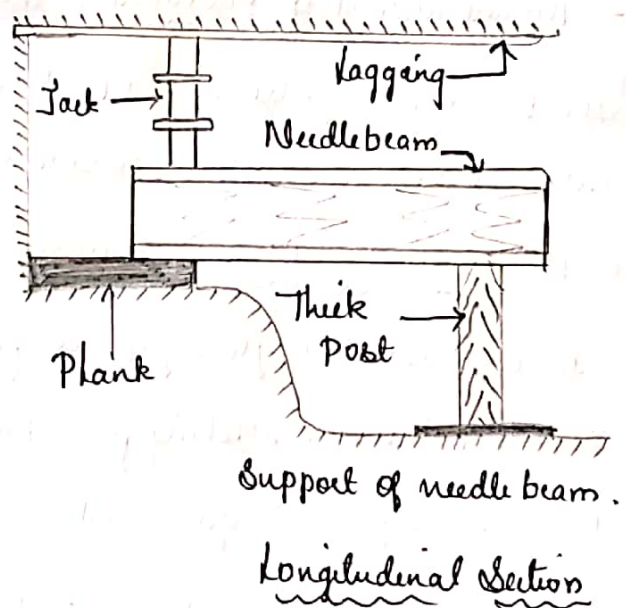 Lagging
Jack
Needlebeam
Thick
Post
Plank
Support of needle beam.
Longitudinal Section